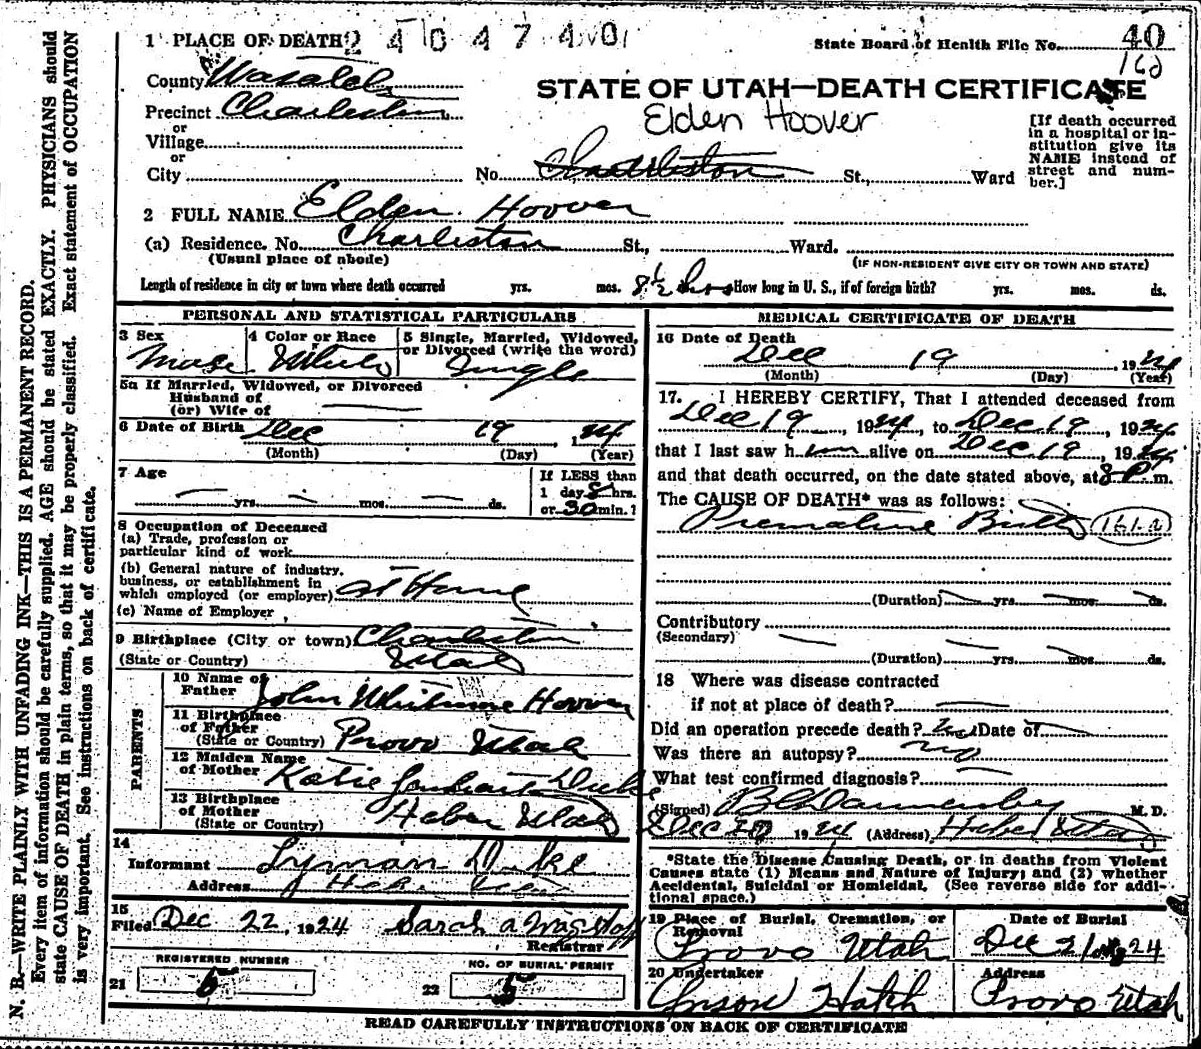 1 PLACE OF DEATH 2404740
State Board of Health File No. 40
160
County Wasatch
STATE OF UTAH—DEATH CERTIFICATE
Precinct Charleston
Elden Hoover
or
Village
or
City No. Charleston St., Ward
[If death occurred
in a hospital or in-
stitution give its
NAME instead of
street and num-
ber.]
2 FULL NAME Elden Hoover
(a) Residence. No. Charleston St., Ward.
(Usual place of abode) (IF NON-RESIDENT GIVE CITY OR TOWN AND STATE)
Length of residence in city or town where death occurred yrs. mos. 8½ hrs How long in U. S., if of foreign birth? yrs. mos. ds.
PERSONAL AND STATISTICAL PARTICULARS
3 Sex
Male
4 Color or Race
White
5 Single, Married, Widowed,
or Divorced (write the word)
Single
5a If Married, Widowed, or Divorced
Husband of
(or) Wife of
6 Date of Birth Dec 19 1924
(Month) (Day) (Year)
7 Age
yrs. mos. ds.
If LESS than
1 day 8 hrs.
or 30 min.?
8 Occupation of Deceased
(a) Trade, profession or
particular kind of work
(b) General nature of industry,
business, or establishment in
which employed (or employer) at Home
(c) Name of Employer
9 Birthplace (City or town) Charleston
(State or Country) Utah
PARENTS
10 Name of
Father John Whitmore Hoover
11 Birthplace
of Father
(State or Country) Provo Utah
12 Maiden Name
of Mother Katie Duke
13 Birthplace
of Mother
(State or Country) Heber Utah
14
Informant Lyman Duke
Address Heber Utah
15
Filed Dec 22, 1924 Sarah a
Registrar
REGISTERED NUMBER
21 5
NO. OF BURIAL PERMIT
22 5
MEDICAL CERTIFICATE OF DEATH
16 Date of Death
Dec 19, 1924
(Month) (Day) (Year)
17. I HEREBY CERTIFY, That I attended deceased from
Dec 19, 1924, to Dec 19, 1924
that I last saw him alive on Dec 19, 1924
and that death occurred, on the date stated above, at 8 P m.
The CAUSE OF DEATH* was as follows:
Premature Birth 161-a
(Duration) yrs. mos. ds.
Contributory
(Secondary)
(Duration) yrs. mos. ds.
18 Where was disease contracted
if not at place of death?
Did an operation precede death? no Date of
Was there an autopsy? no
What test confirmed diagnosis?
(Signed) M. D.
Dec 20 1924 (Address) Heber Utah
*State the Disease Causing Death, or in deaths from Violent
Causes state (1) Means and Nature of Injury; and (2) whether
Accidental, Suicidal or Homicidal. (See reverse side for addi-
tional space.)
19 Place of Burial, Cremation, or
Removal
Provo Utah
Date of Burial
Dec 21 1924
20 Undertaker
Hatch
Address
Provo Utah
READ CAREFULLY INSTRUCTIONS ON BACK OF CERTIFICATE
N. B.—WRITE PLAINLY WITH UNFADING INK—THIS IS A PERMANENT RECORD.
Every item of information should be carefully supplied. AGE should be stated EXACTLY. PHYSICIANS should
state CAUSE OF DEATH in plain terms, so that it may be properly classified. Exact statement of OCCUPATION
is very important. See instructions on back of certificate.